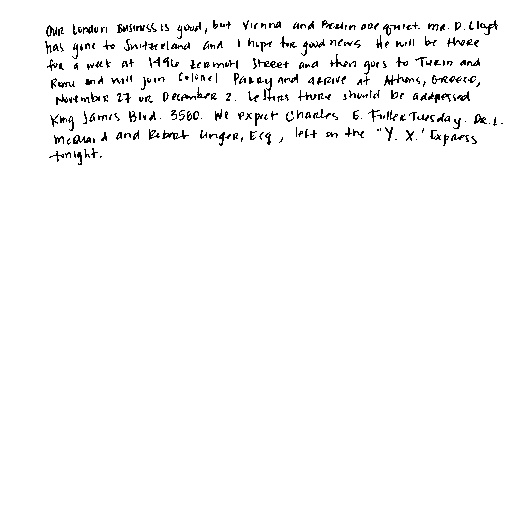 Our London Business is good, but Vienna and Berlin are quiet. Mr. D. Lloyd
has gone to Switzerland and I hope for good news. He will be there
for a week at 1496 Zermott Street and then goes to Turin and
Rome and will join Colonel Parry and arrive at Athens, Greece,
November 27 or December 2. Letters there should be addressed
King James Blvd. 3580. We expect Charles E. Fuller Tuesday. Dr. L.
McQuaid and Robert Unger, Esq., left on the "Y. X." Express
tonight.